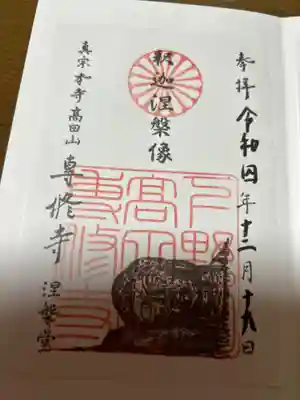 奉拝 令和四年十二月十八日
釈迦涅槃像
真宗本寺高田山 専修寺 涅槃堂